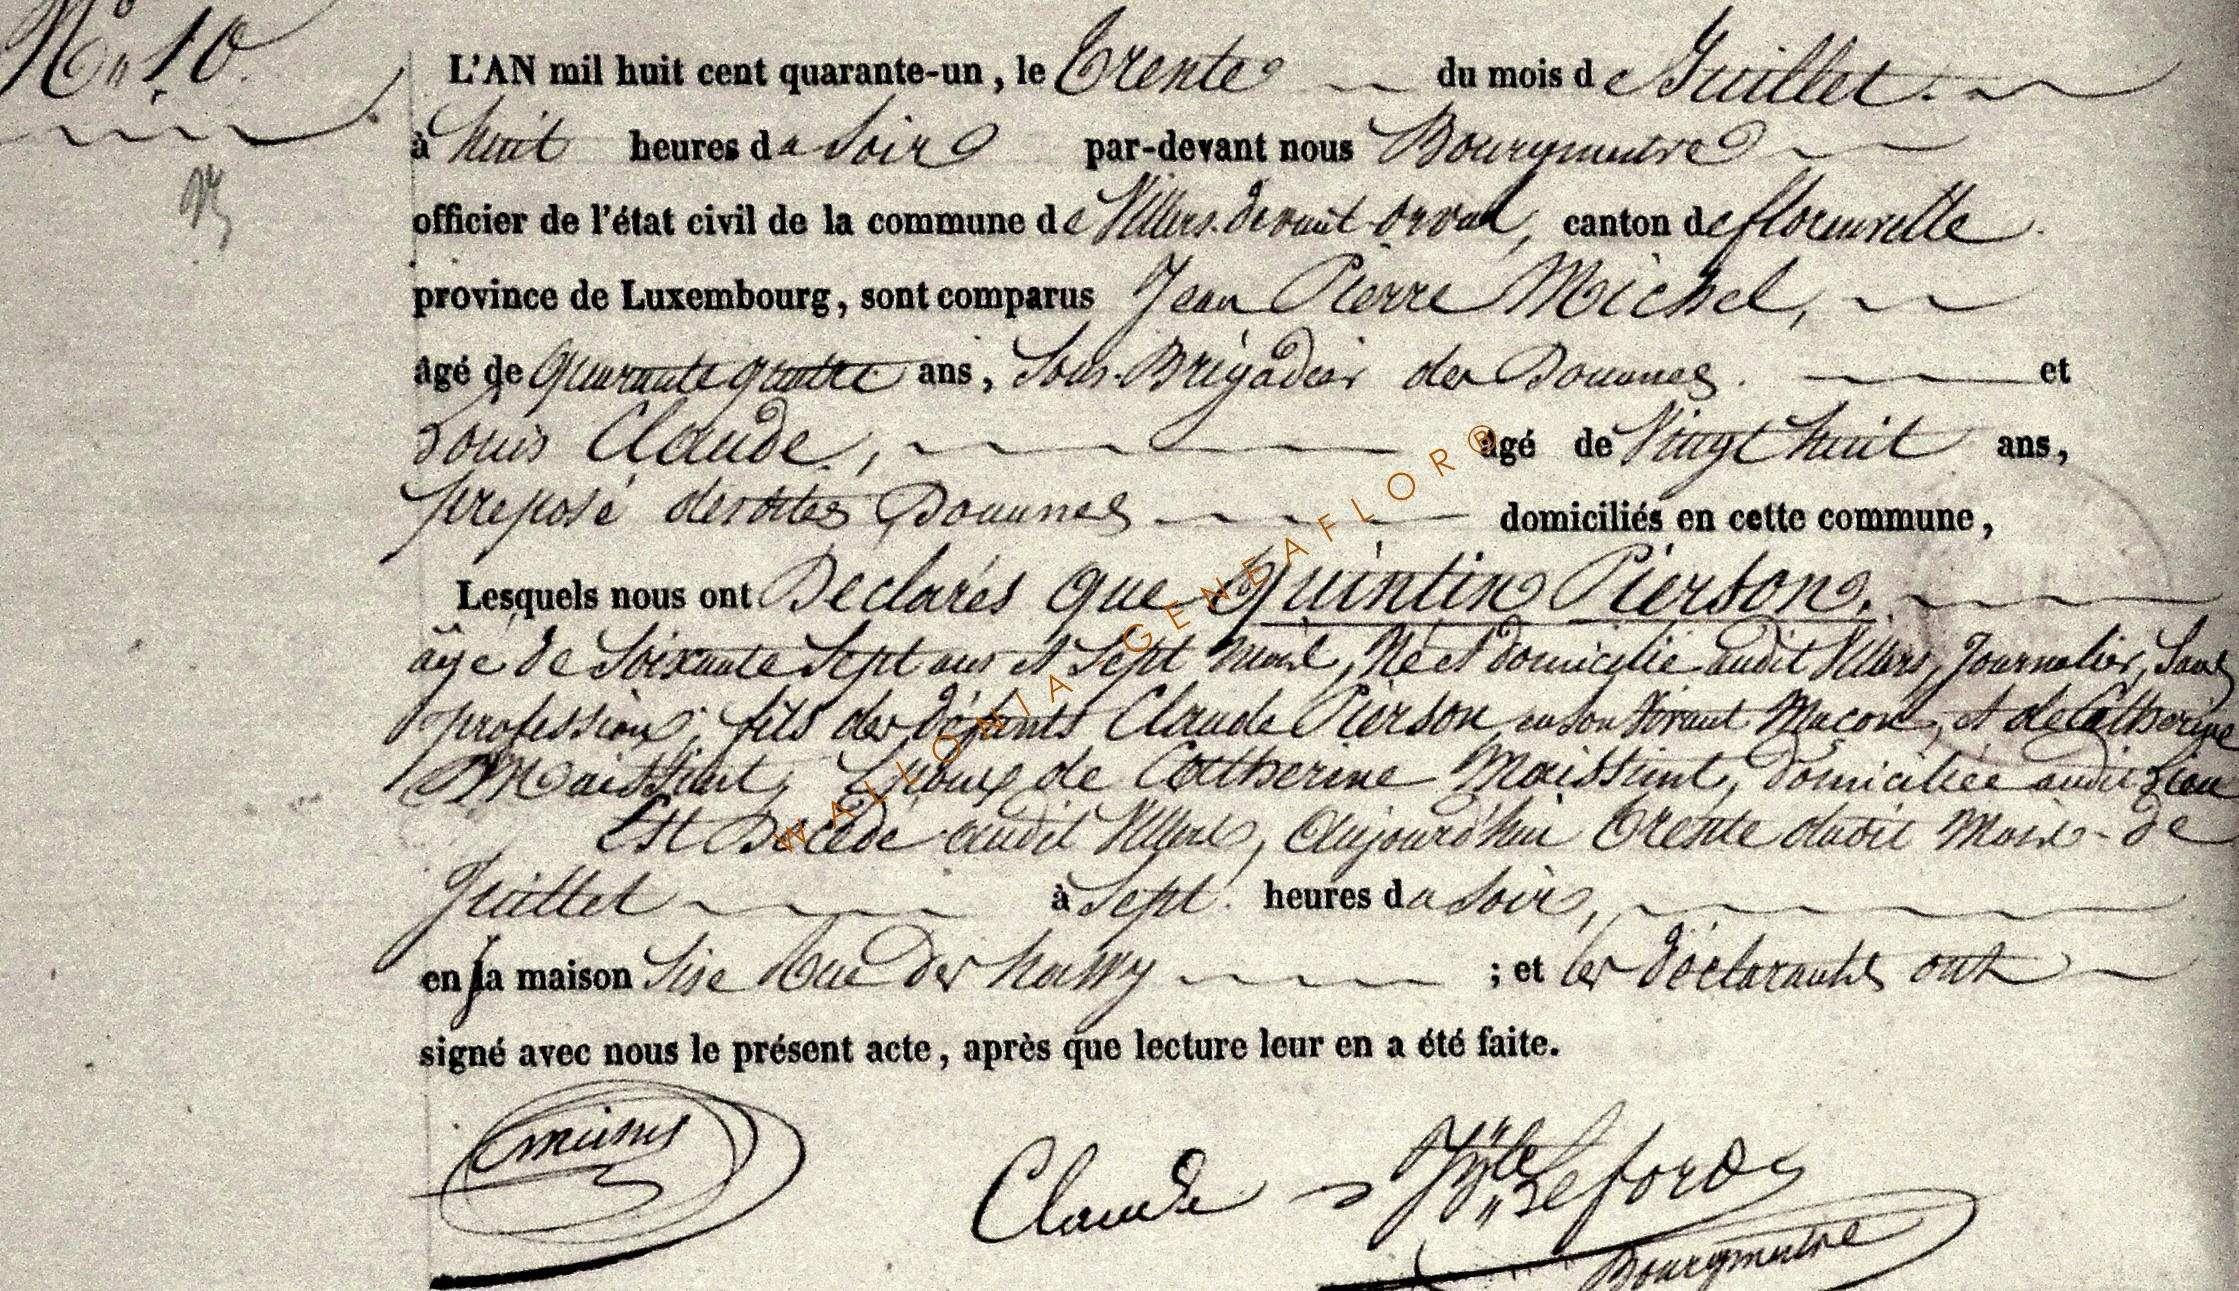 N° 10.
L'AN mil huit cent quarante-un, le Trente du mois de Juillet.
à huit heures du Soir par-devant nous Bourgmestre
officier de l'état civil de la commune de Villers-devant-orval, canton de florenville.
province de Luxembourg, sont comparus Jean Pierre Michel,
âgé de Quarante quatre ans, Sous-Brigadier des Douanes. et
Louis Claude, âgé de Vingt huit ans,
preposé desdites Douanes domiciliés en cette commune,
Lesquels nous ont Declarés que Quintin Pierson,
âgé de Soixante Sept ans et Sept mois, Né et domicilié audit Villers, Journalier, Sans
profession, fils des défunts Claude Pierson en son Vivant Macon, et de Catherine
Maissiant, Epoux de Catherine Maissiant, domiciliée audit Lieu
Est Décédé audit Villers, Aujourd'hui Trente dudit Mois de
Juillet à Sept heures du Soir,
en sa maison Sise Rue der ; et les déclarants ont
signé avec nous le présent acte, après que lecture leur en a été faite.
Claude
Bourgmestre
WALLONIA-GENEAFLOR®